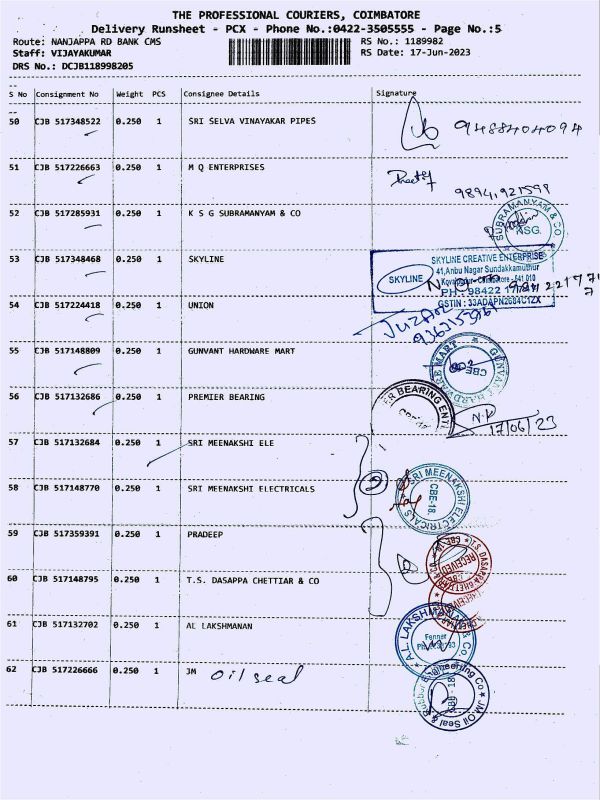 THE PROFESSIONAL COURIERS, COIMBATORE
Delivery Runsheet - PCX - Phone No.:0422-3505555 - Page No.:5
Route: NANJAPPA RD BANK CMS RS No.: 1189982
Staff: VIJAYAKUMAR RS Date: 17-Jun-2023
DRS No.: DCJB118998205
S No Consignment No Weight PCS Consignee Details Signature
50 CJB 517348522 0.250 1 SRI SELVA VINAYAKAR PIPES 9488404094
51 CJB 517226663 0.250 1 M Q ENTERPRISES
9894,921599
52 CJB 517285931 0.250 1 K S G SUBRAMANYAM & CO SUBRAMANYAM & CO
53 CJB 517348468 0.250 1 SKYLINE SKYLINE SKYLINE CREATIVE ENTERPRISE
41,Anbu Nagar Sundakkamuthur
541 010
GSTIN : 33ADAPN2684C1ZX
54 CJB 517224418 0.250 1 UNION
55 CJB 517148809 0.250 1 GUNVANT HARDWARE MART GUNVANT HARDWARE MART CBE
56 CJB 517132686 0.250 1 PREMIER BEARING BEARING
17/06/23
57 CJB 517132684 0.250 1 SRI MEENAKSHI ELE
58 CJB 517148770 0.250 1 SRI MEENAKSHI ELECTRICALS 2 SRI MEENAKSHI ELECTRICALS CBE-18
59 CJB 517359391 0.250 1 PRADEEP
60 CJB 517148795 0.250 1 T.S. DASAPPA CHETTIAR & CO T.S. DASAPPA RECEIVED
61 CJB 517132702 0.250 1 AL LAKSHMANAN A.L. LAKSHMANAN & Co
62 CJB 517226666 0.250 1 JM oil seal JM Oil Seal & Engineering Co